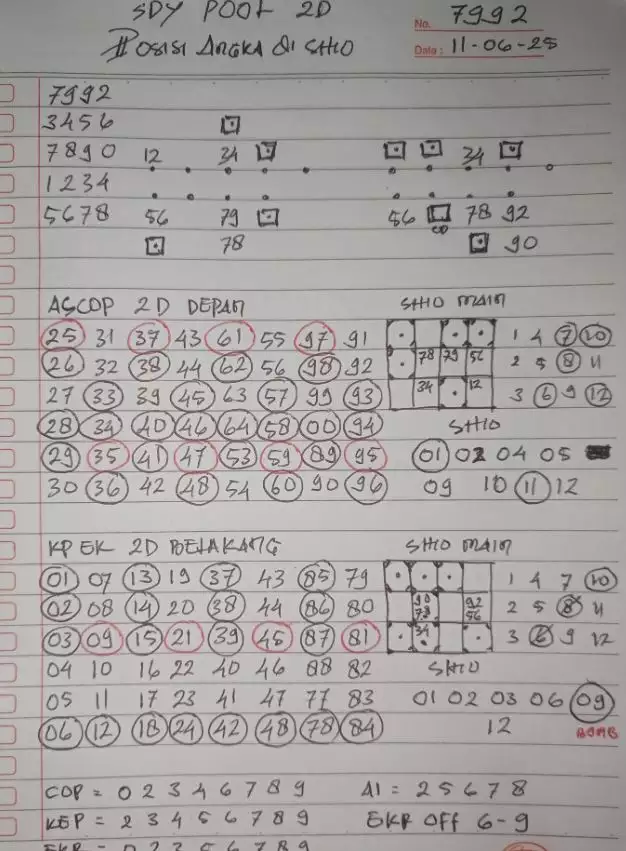 SDY POOL 2D
No. 7992
POSISI ANGKA DI SHIO
Date : 11-06-25
7992
3456
7890 12 34 34
1234
5678 56 79 56 78 92
78 90
ASCOP 2D DEPAN SHIO MAIN
25 31 37 43 61 55 97 91 1 4 7 10
26 32 38 44 62 56 98 92 78 79 56 2 5 8 11
27 33 39 45 63 57 99 93 34 12 3 6 9 12
28 34 40 46 64 58 00 94 SHIO
29 35 41 47 53 59 89 95 01 02 04 05
30 36 42 48 54 60 90 96 09 10 11 12
KP EK 2D BELAKANG SHIO MAIN
01 07 13 19 37 43 85 79 1 4 7 10
02 08 14 20 38 44 86 80 90 78 92 56 2 5 8 11
03 09 15 21 39 45 87 81 34 3 6 9 12
04 10 16 22 40 46 88 82 SHIO
05 11 17 23 41 47 77 83 01 02 03 06 09
06 12 18 24 42 48 78 84 12 BOMB
COP = 0 2 3 4 6 7 8 9 AI = 2 5 6 7 8
KEP = 2 3 4 5 6 7 8 9 EKR OFF 6-9
EKR = 0 2 3 5 6 7 8 9